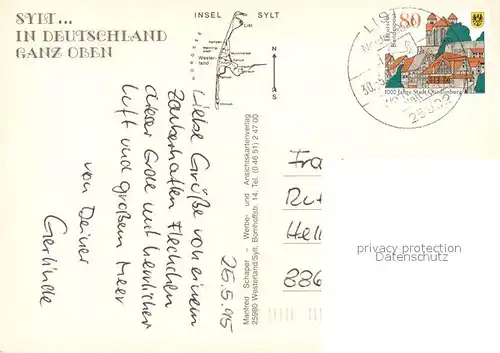 SYLT...
IN DEUTSCHLAND
GANZ OBEN
INSEL SYLT
List
Wester-
land
N
S
Liebe Grüße von einem
zauberhaften Fleckchen
dieser Erde mit herrlicher
Luft und großem Meer
von Deiner
Gerlinde
25.5.95
Manfred Schaper – Werbe- und Ansichtskartenverlag
25980 Westerland/Sylt, Bomhoffstr. 14, Tel. (0 46 51) 2 47 00
LIST
30.5.
25992
80
Deutsche
Bundespost
1000 Jahre Stadt Quedlinburg
Fra
Hel
886
privacy protection
Datenschutz